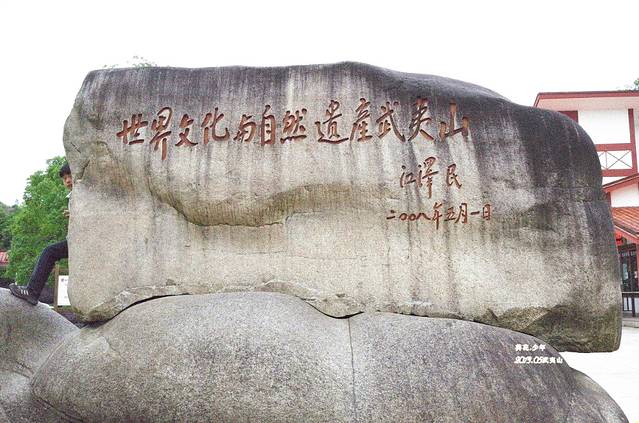 世界文化与自然遗產武夷山
江澤民
二〇〇八年五月一日
荷花.少年
2013.05武夷山